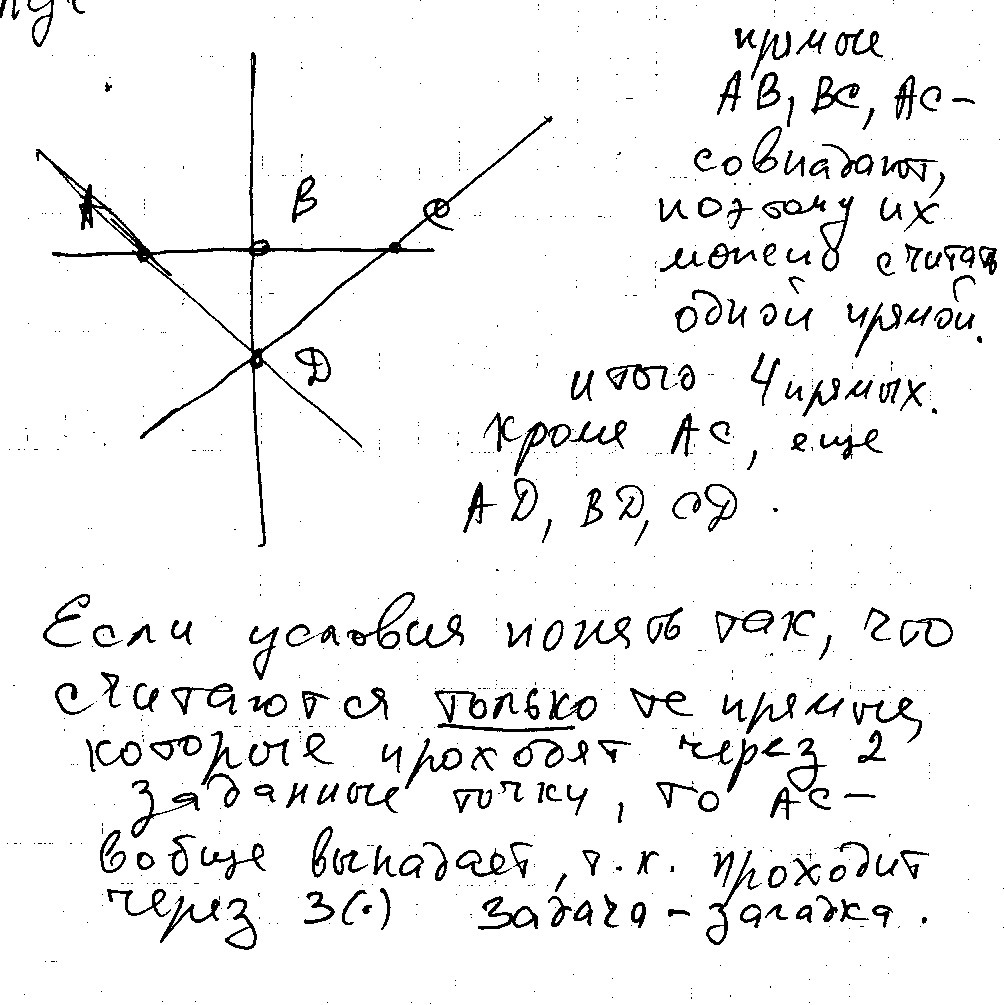 прямые
A B, BC, AC -
совпадают,
поэтому их
можно считать
одной прямой.
A
B
C
D
итого 4 прямых.
кроме AC, еще
AD, BD, CD.
Если условия понять так, что
считаются только те прямые,
которые проходят через 2
заданные точки, то AC -
вообще выпадает, т.к. проходит
через 3(·) Задача-загадка.